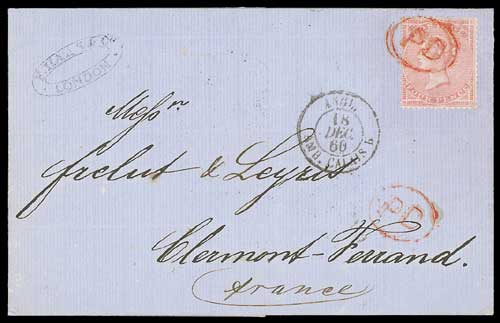 LONDON
PD
FOUR PENCE
ANGL.
18
DEC.
60
AMB. CALAIS
PD
Mess
Frelut & Leyris
Clermont-Ferrand.
France